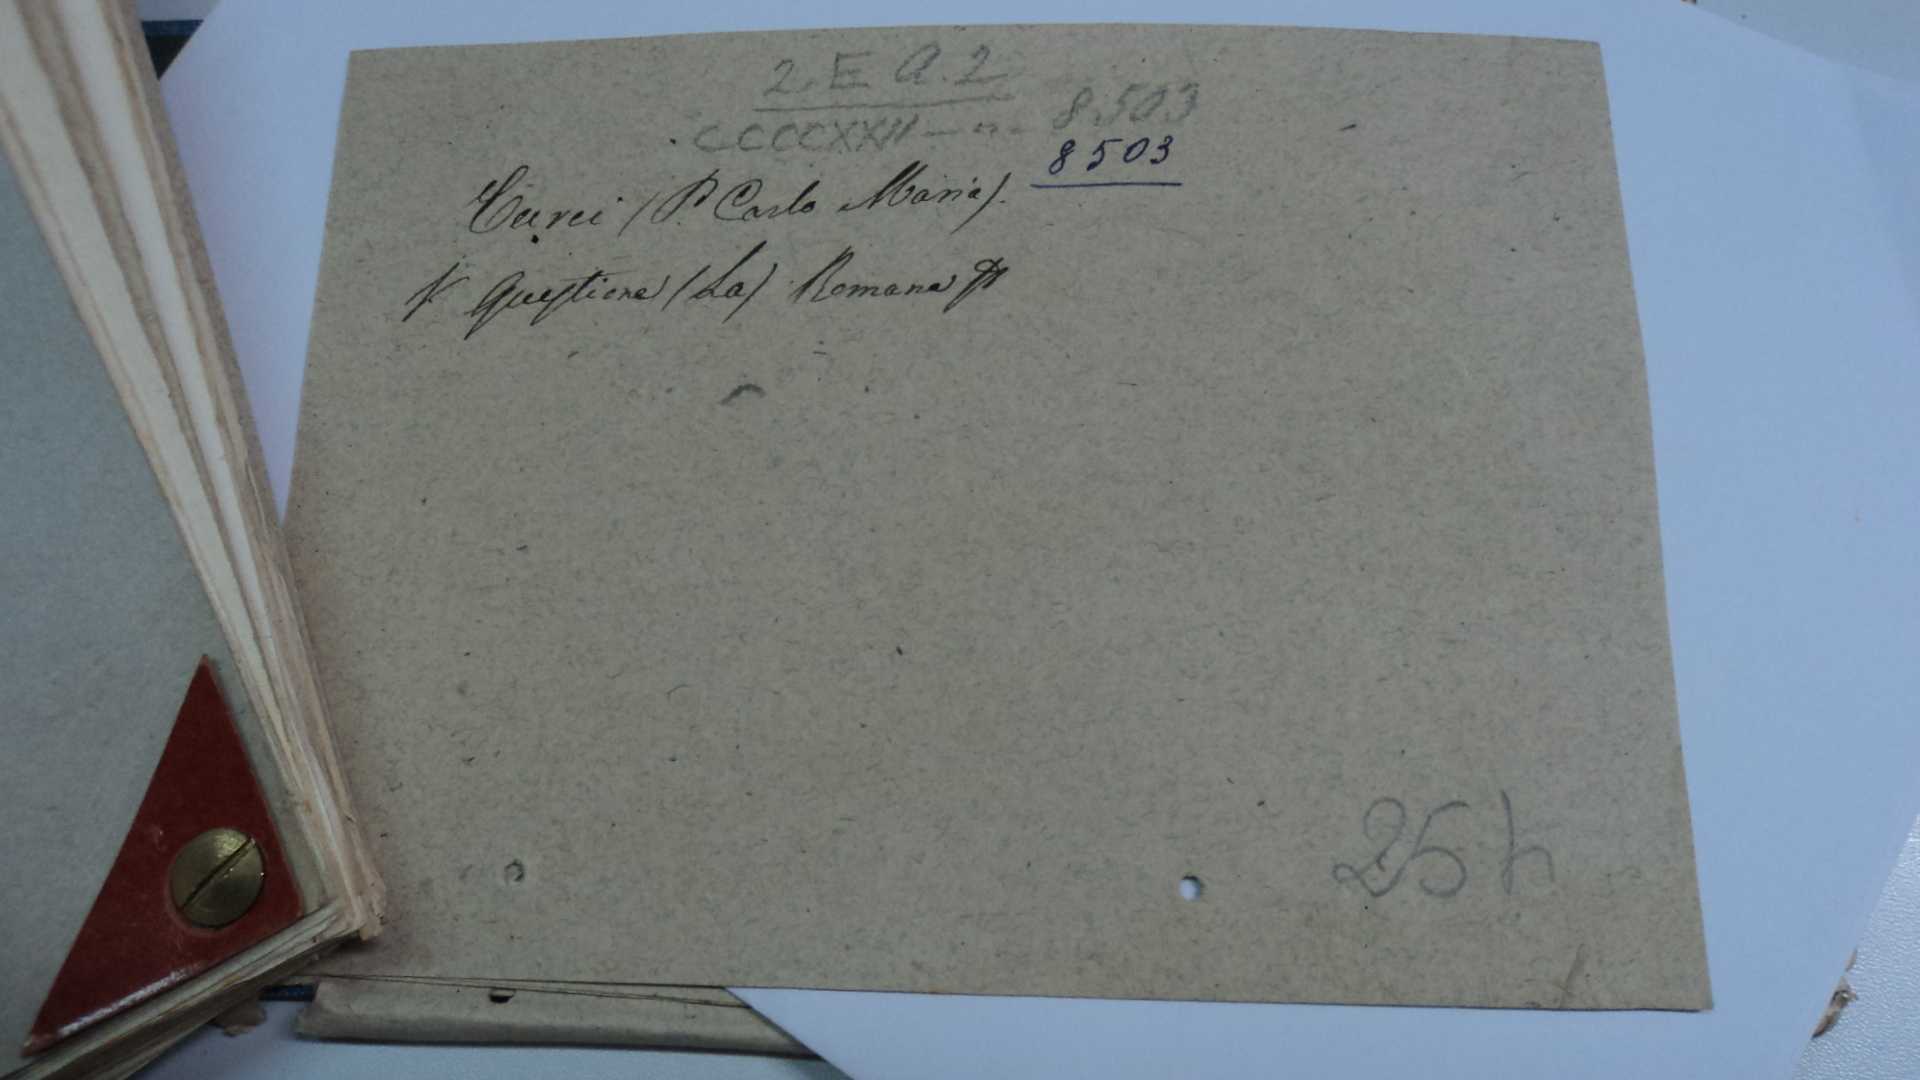 2. E A. 2
CCCCXXII — n. 8.503
8503
Curci (P. Carlo Maria).
V Questione (La) Romana
25 h